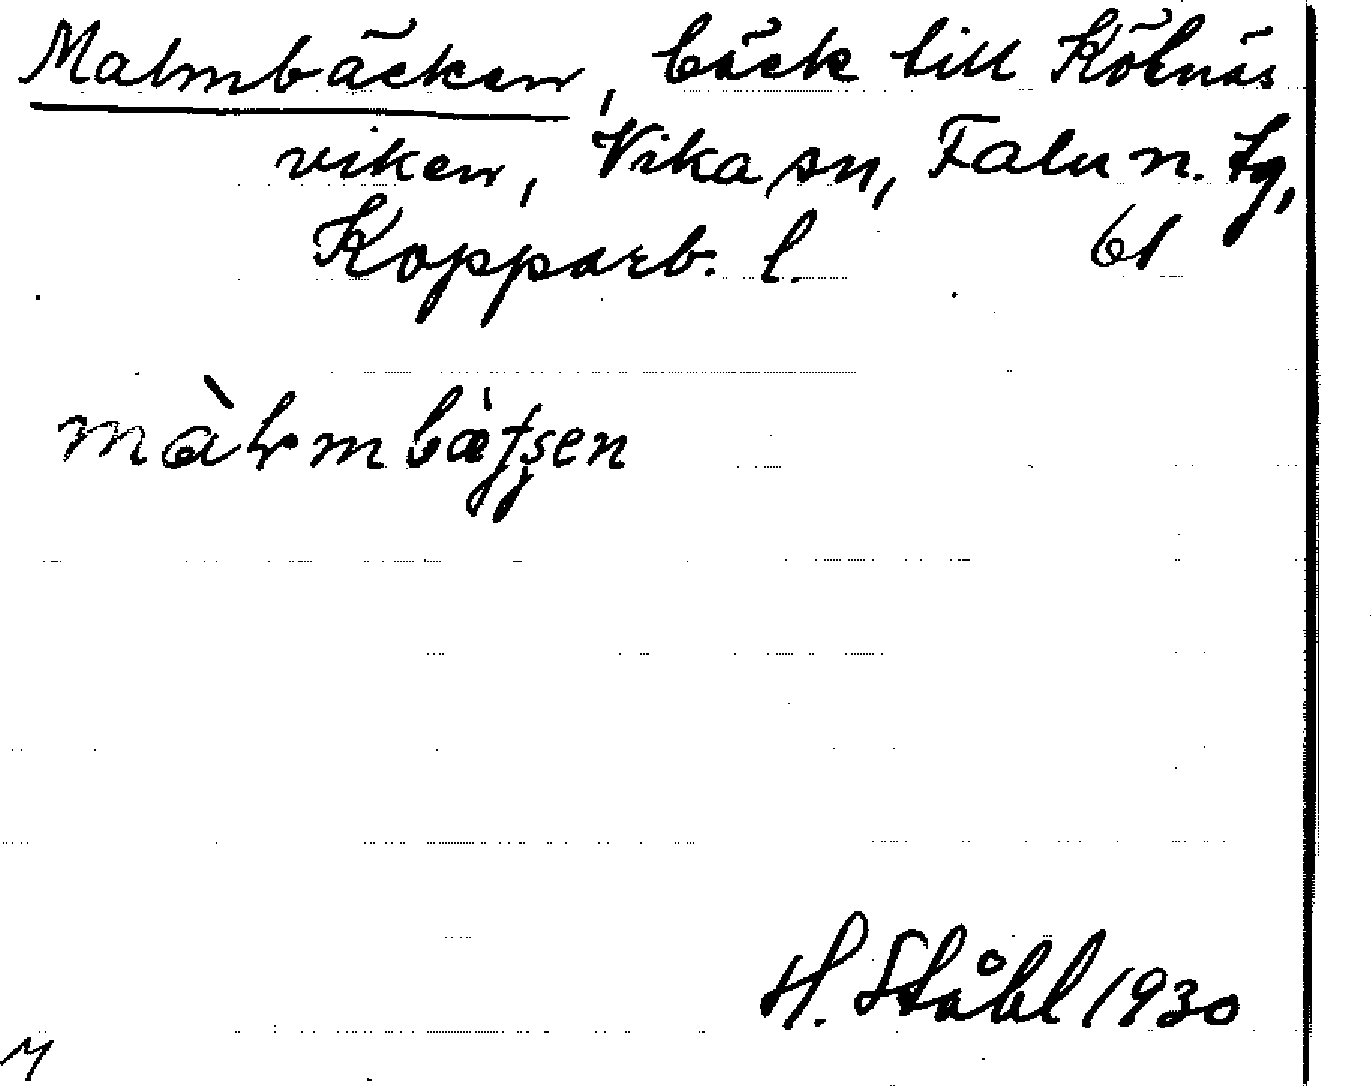 Malmbäcken, bäck till Kölnäs
viken, Vika sn, Falu n. tg,
Kopparb. l. 61
H. Ståhl 1930